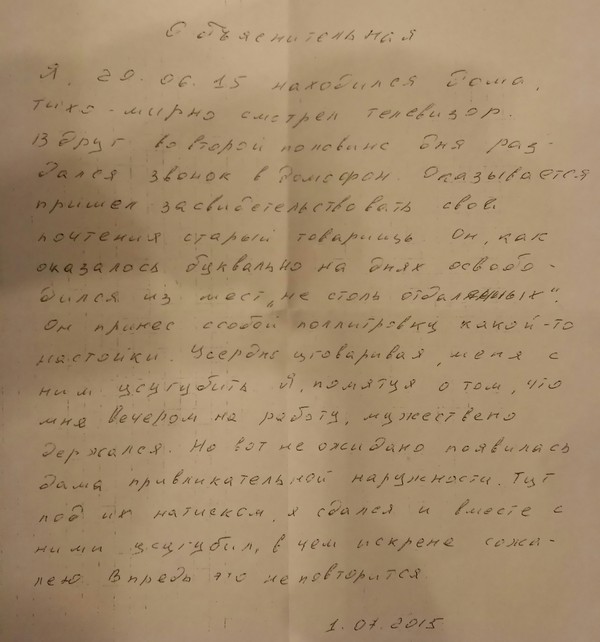 Объяснительная
Я, 29.06.15 находился дома,
тихо-мирно смотрел телевизор.
Вдруг во второй половине дня раз-
дался звонок в домофон. Оказывается
пришел засвидетельствовать свои
почтения старый товарищь. Он, как
оказалось буквально на днях освобо-
дился из мест „не столь отдаленных".
Он принес ссобой поллитровку какой-то
настойки. Усердно уговаривая, меня с
ним усугубить. Я, помятуя о том, что
мне вечером на работу, мужествено
держался. Но вот не ожидано появилась
дама привликательной наружности. Тут
под их натиском, я сдался и вместе с
ними усугубил, в чем искрене сожа-
лею. Впредь это неповторится.
1.07.2015